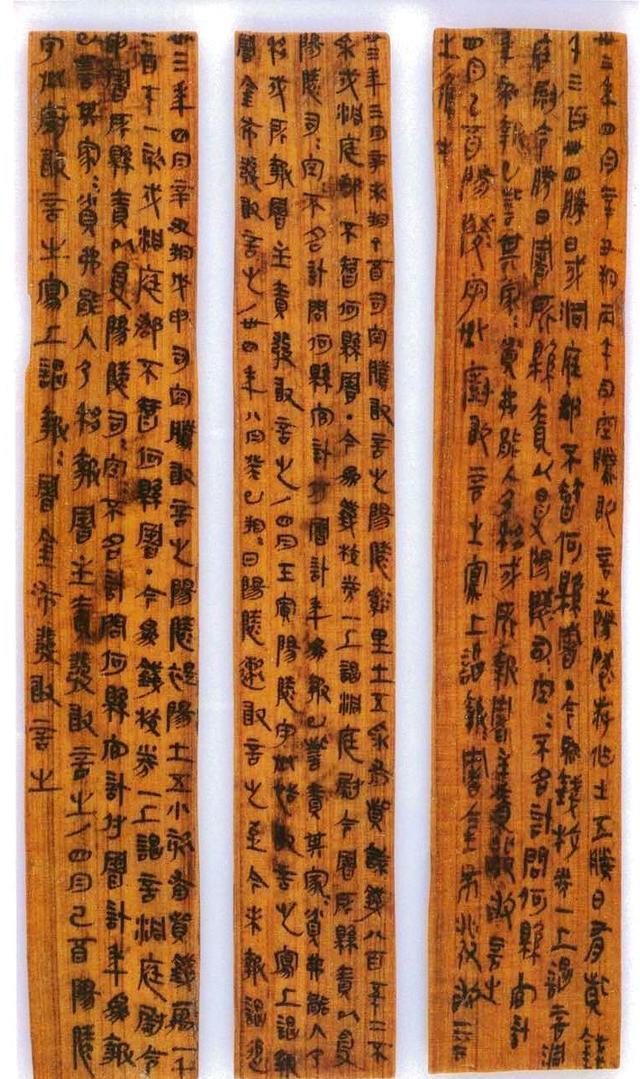 卅三年四月辛丑朔丙午司空騰敢言之陽陵叔作士五勝日有貲錢
千三百卌四勝日戍洞庭郡不智何縣署·今為錢校券一上謁言洞
庭尉令勝日署所縣責以受陽陵司=空=不名計問何縣官計
年為報已訾其家=貧弗能入乃移戍所報署主責發敢言之
四月己酉陽陵守丞廚敢言之寫上謁報署金布發敢言
之/儋手
卅三年三月辛未朔丁酉司空騰敢言之陽陵谿里士五采有貲餘錢八百五十二不
采戍洞庭郡不智何縣署·今為錢校券一上謁洞庭尉令署所縣責以受
陽陵司=空不名計問何縣官計付署計年為報已訾責其家=貧弗能入乃
移戍所報署主責發敢言之/四月壬寅陽陵守丞恬敢言之寫上謁報
署金布發敢言之/卅四年八月癸巳朔=日陽陵遬敢言之至今未報謁追
卅三年四月辛丑朔戊申司空騰敢言之陽陵褆陽士五小欬有貲錢萬一千
二百七十一欬戍洞庭郡不智何縣署·今為錢校券一上謁言洞庭尉令
欬署所縣責以受陽陵司=空不名計問何縣官計付署計年為報
已訾其家=貧弗能入乃移報署主責發敢言之/四月己酉陽陵
守丞廚敢言之寫上謁報=署金布發敢言之